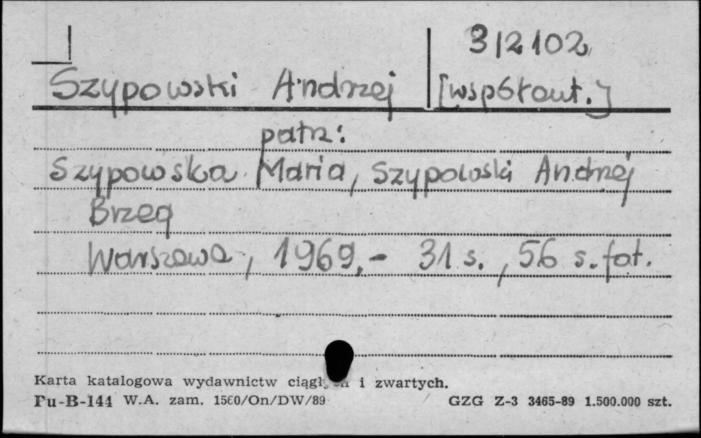 312102
Szypowski Andrzej [współaut.]
patrz:
Szypowska Maria, Szypowski Andrzej
Brzeg
Warszawa, 1969,- 31 s., 56 s. fot.
Karta katalogowa wydawnictw ciągłych i zwartych.
Pu-B-144 W.A. zam. 1560/On/DW/89 GZG Z-3 3465-89 1.500.000 szt.